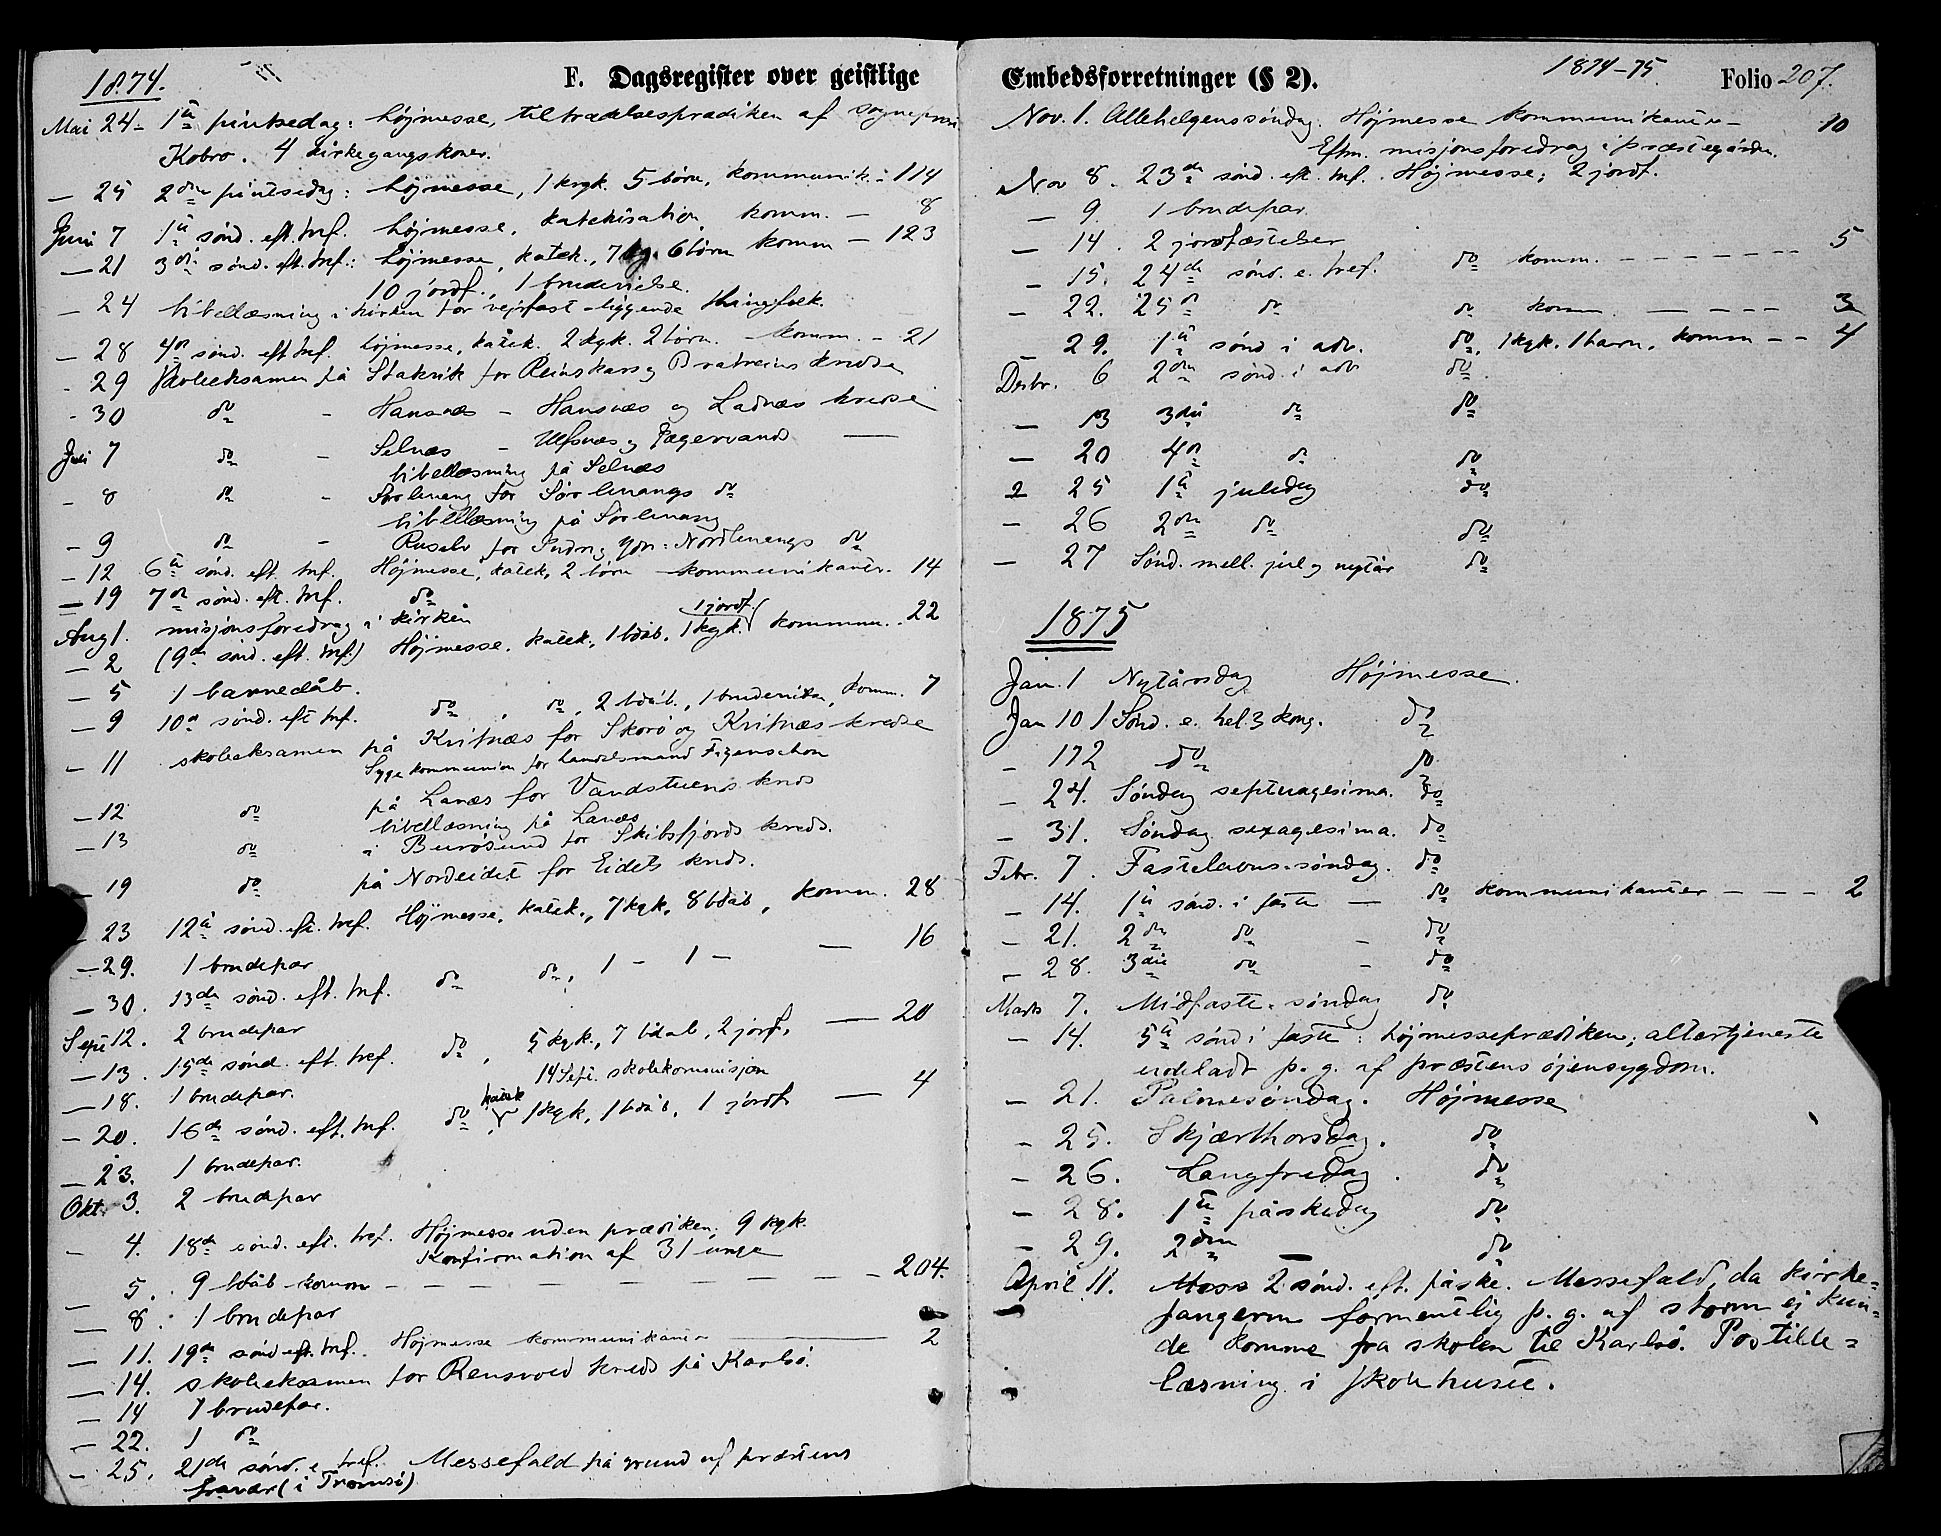 1874.
F. Dagsregister over geistlige
Mai 24 - 1ste pintsedag: højmesse, tiltrædelsesprædiken af sognepræst
Kobro. 4 kirkegangskoner.
— 25 2den pintsedag: højmesse, 1 krgk. 5 børn, kommunik. - 114
Juni 7 1ste sønd. eft. tref. højmesse, katekisation, komm. — 8
— 21 3die sønd. eft. tref.: højmesse, katek., 7 kg. 6 børn komm — 123
10 jordf., 1 brudevielse.
— 24 bibellæsning i kirken for vejrfast liggende thingfolk.
— 28 4de sønd. eft tref. højmesse, katek. 2 kgk. 2 børn. komm. - 21
- 29 skoleeksamen på Stakvik for Reinskar og Bratreins kredse
- 30 do - Hansnæs - Hansnæs og Ladnæs kredse
Juli 7 do - Selnæs - Ulfsnæs og Jægervands —
bibellæsning på Selnæs
- 8 do - Sørlenang for Sørlenangs do
bibellæsning på Sørlenang
- 9 do - Ruselv for Indre og Ydre Nordlenangs do
- 12 6te sønd. eft. tref. Højmesse, katek, 2 børn kommunikanter. 14
— 19 7de sønd. eft. tref. do
Aug 1. misjonsforedrag i kirken
— 2 (9de sønd. eft. tref.) Højmesse. katek., 1 bdåb, 1 kgk. 1 jordf. kommun. 22
— 5 1 barnedåb.
— 9 10de sønd. eft tref. do, do, 2 bdåb., 1 brudevielse, komm. 7
— 11 skoleeksamen på Kvitnæs for Skorø og Kvitnæs kredse
Sygekommunion for handelsmand Figenschou
— 12 do på Lanæs for Vandstuens kreds
bibellæsning på Lanæs
— 13 do i Burøsund for Skibsfjords kreds.
— 19 do på Nordeidet for Eidets kreds.
— 23 12te sønd. eft. tref. Højmesse, katek., 7 kgk, 8 bdåb, komm. 28
— 29. 1 brudepar
— 30. 13de sønd. eft. tref. do do, 1 - 1 - — 16
Sept 12. 2 brudepar
— 13. 15de sønd. eft. tref. do, 5 kgk., 7 bdåb, 2 jordf, — 20
14 Sept. skolekommisjon
— 18. 1 brudepar.
— 20. 16de sønd. eft. tref. do katek, 1 kgk, 1 bdåb, 1 jordf. — 4
— 23. 1 brudepar.
Okt. 3. 2 brudepar
— 4. 18de sønd. eft. tref. Højmesse uden prædiken; 9 kgk.
Konfirmation af 31 unge
— 5. 9 bdåb komm — — — — — — 204.
— 8. 1 brudepar
— 11. 19de sønd eft. tref. Højmesse kommunikanter — 2
— 14. skoleeksamen for Rensvold kreds på Karlsø.
— 14 1 brudepar.
— 22. 1 do
— 25. 21de sønd. e tref. Messefald på grund af præstens
fravær (i Tromsø)
Embedsforretninger (§ 2).
1874-75
Folio 207.
Nov. 1. Allehelgenssøndag. Højmesse kommunikanter — 10
Eftm. misjonsforedrag i præstegården.
Nov 8. 23de sønd. eft. tref. Højmesse; 2 jordf.
— 9. 1 brudepar.
— 14. 2 jordfæstelser
— 15. 24de sønd. e. tref. do komm. - - - - - - - - 5
— 22. 25de do do komm. — - - - 3
— 29. 1ste sønd i adv. do, 1 kgk. 1 barn, komm - - 4
Desbr. 6 2den sønd. i adv do
— 13 3die do do
— 20 4de do do
— 25 1ste juledag do
— 26 2den do do
— 27 Sønd. mell. jul og nytår do
1875
Jan. 1 Nytårsdag Højmesse.
Jan 10 1 Sønd. e. hel. 3 kong. do
— 17 2 do do
— 24. Søndag septuagesima. do
— 31. Søndag sexagesima. do
Febr. 7. Fastelavns-søndag. do
— 14. 1ste sønd. i faste — do kommunikanter - - - 2
— 21. 2den do - do
— 28. 3die do - do
Marts 7. Midfaste-søndag do
— 14. 5te sønd i faste: højmesseprædiken; altertjeneste
udeladt p. g. af præstens øjensygdom.
— 21. Palmesøndag. Højmesse
— 25. Skjærthorsdag. do
— 26. Langfredag. do
— 28. 1ste påskedag do
— 29. 2den — do
April 11. 2 sønd. eft. påske. Messefald, da kirke-
sangeren formentlig p. g. af storm ej kun-
de komme fra skolen til Karlsø. Postille-
læsning i skolehuset.